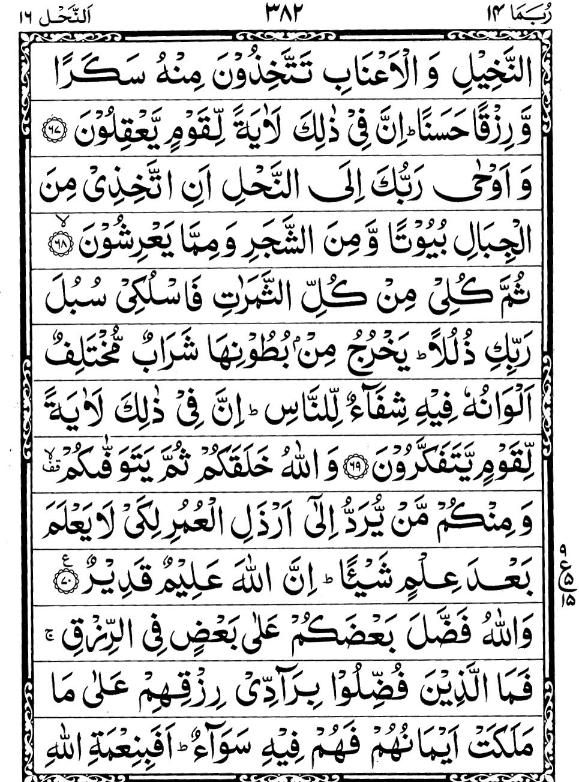 رُبَمَا ١٤ ٣٨٢ اَلنَّحْل ١٦
النَّخِيْلِ وَ الْاَعْنَابِ تَتَّخِذُوْنَ مِنْهُ سَكَرًا
وَّ رِزْقًا حَسَنًا ؕ اِنَّ فِيْ ذٰلِكَ لَاٰيَةً لِّقَوْمٍ يَّعْقِلُوْنَ ﴿٦٧﴾
وَ اَوْحٰى رَبُّكَ اِلَى النَّحْلِ اَنِ اتَّخِذِيْ مِنَ
الْجِبَالِ بُيُوْتًا وَّ مِنَ الشَّجَرِ وَ مِمَّا يَعْرِشُوْنَ ﴿٦٨﴾ۙ
ثُمَّ كُلِيْ مِنْ كُلِّ الثَّمَرٰتِ فَاسْلُكِيْ سُبُلَ
رَبِّكِ ذُلُلًا ؕ يَخْرُجُ مِنْۢ بُطُوْنِهَا شَرَابٌ مُّخْتَلِفٌ
اَلْوَانُهٗ فِيْهِ شِفَآءٌ لِّلنَّاسِ ؕ اِنَّ فِيْ ذٰلِكَ لَاٰيَةً
لِّقَوْمٍ يَّتَفَكَّرُوْنَ ﴿٦٩﴾ وَ اللّٰهُ خَلَقَكُمْ ثُمَّ يَتَوَفّٰىكُمْ ۙ قف
وَ مِنْكُمْ مَّنْ يُّرَدُّ اِلٰۤى اَرْذَلِ الْعُمُرِ لِكَيْ لَا يَعْلَمَ
بَعْدَ عِلْمٍ شَيْـًٔا ؕ اِنَّ اللّٰهَ عَلِيْمٌ قَدِيْرٌ ﴿٧٠﴾ ع
٩
ع ٥
١٥
وَاللّٰهُ فَضَّلَ بَعْضَكُمْ عَلٰى بَعْضٍ فِي الرِّزْقِ ۚ
فَمَا الَّذِيْنَ فُضِّلُوْا بِرَآدِّيْ رِزْقِهِمْ عَلٰى مَا
مَلَكَتْ اَيْمَانُهُمْ فَهُمْ فِيْهِ سَوَآءٌ ؕ اَفَبِنِعْمَةِ اللّٰهِ